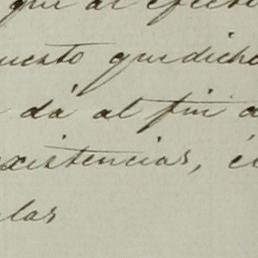 que al efecto
uesto que dicho
dá al fin a
existencias, é
las